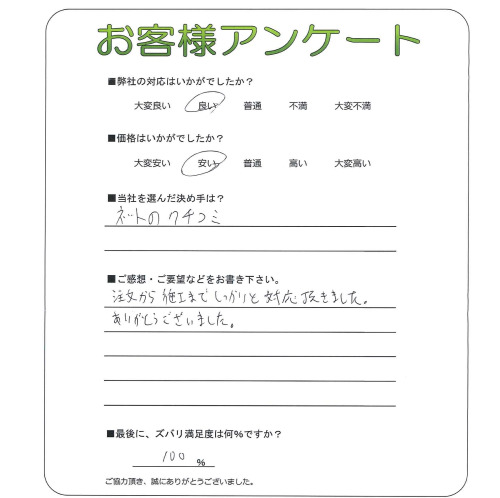 お客様アンケート
■弊社の対応はいかがでしたか？
大変良い 良い 普通 不満 大変不満
■価格はいかがでしたか？
大変安い 安い 普通 高い 大変高い
■当社を選んだ決め手は？
ネットのクチコミ
■ご感想・ご要望などをお書き下さい。
注文から施工までしっかりと対応頂きました。
ありがとうございました。
■最後に、ズバリ満足度は何%ですか？
100 %
ご協力頂き、誠にありがとうございました。